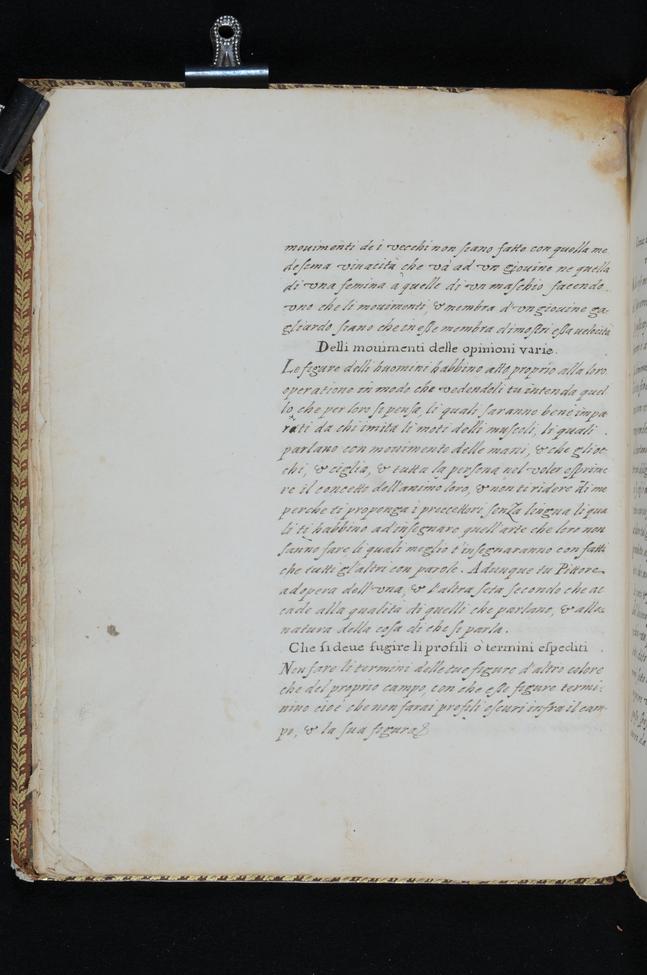 mouimenti de i vecchi non siano fatte con quella me
desema viuacità che và ad vn giouine ne quella
di vna femina a quelle di vn maschio facendo
vno che li mouimenti, & membra d'vn giouine ga-
gliardo siano che in esse membra dimostri essa velocità
Delli mouimenti delle opinioni varie.
Le figure delli huomini habbino atto proprio alla loro
operatione in modo che vedendoli tu intenda quel
lo che per loro si pensa, li quali saranno bene impa
rati da chi imita li moti delli muscoli, li quali
parlano con mouimento delle mani, & che gl'ioc
chi, & ciglia, & tutta la persona nel voler esprime
re il concetto dell'animo loro, & non ti ridere di me
perche ti proponga i precettori senza lingua li qua
li ti habbino ad insegnare quell'arte che loro non
sanno fare, li quali meglio t'insegnaranno con fatti
che tutti gl'altri con parole. Adunque tu Pittore
adopera dell'vna, & l'altra seta secondo che ac
cade alla qualita di quelli che parlano, & alla
natura della cosa di che si parla.
Che si deue fugire li profili o' termini espediti
Non fare li termini delle tue figure d'altro colore
che del proprio campo, con che esse figure termi-
nino cioè che non farai profili oscuri infra il cam-
po, & la sua figura